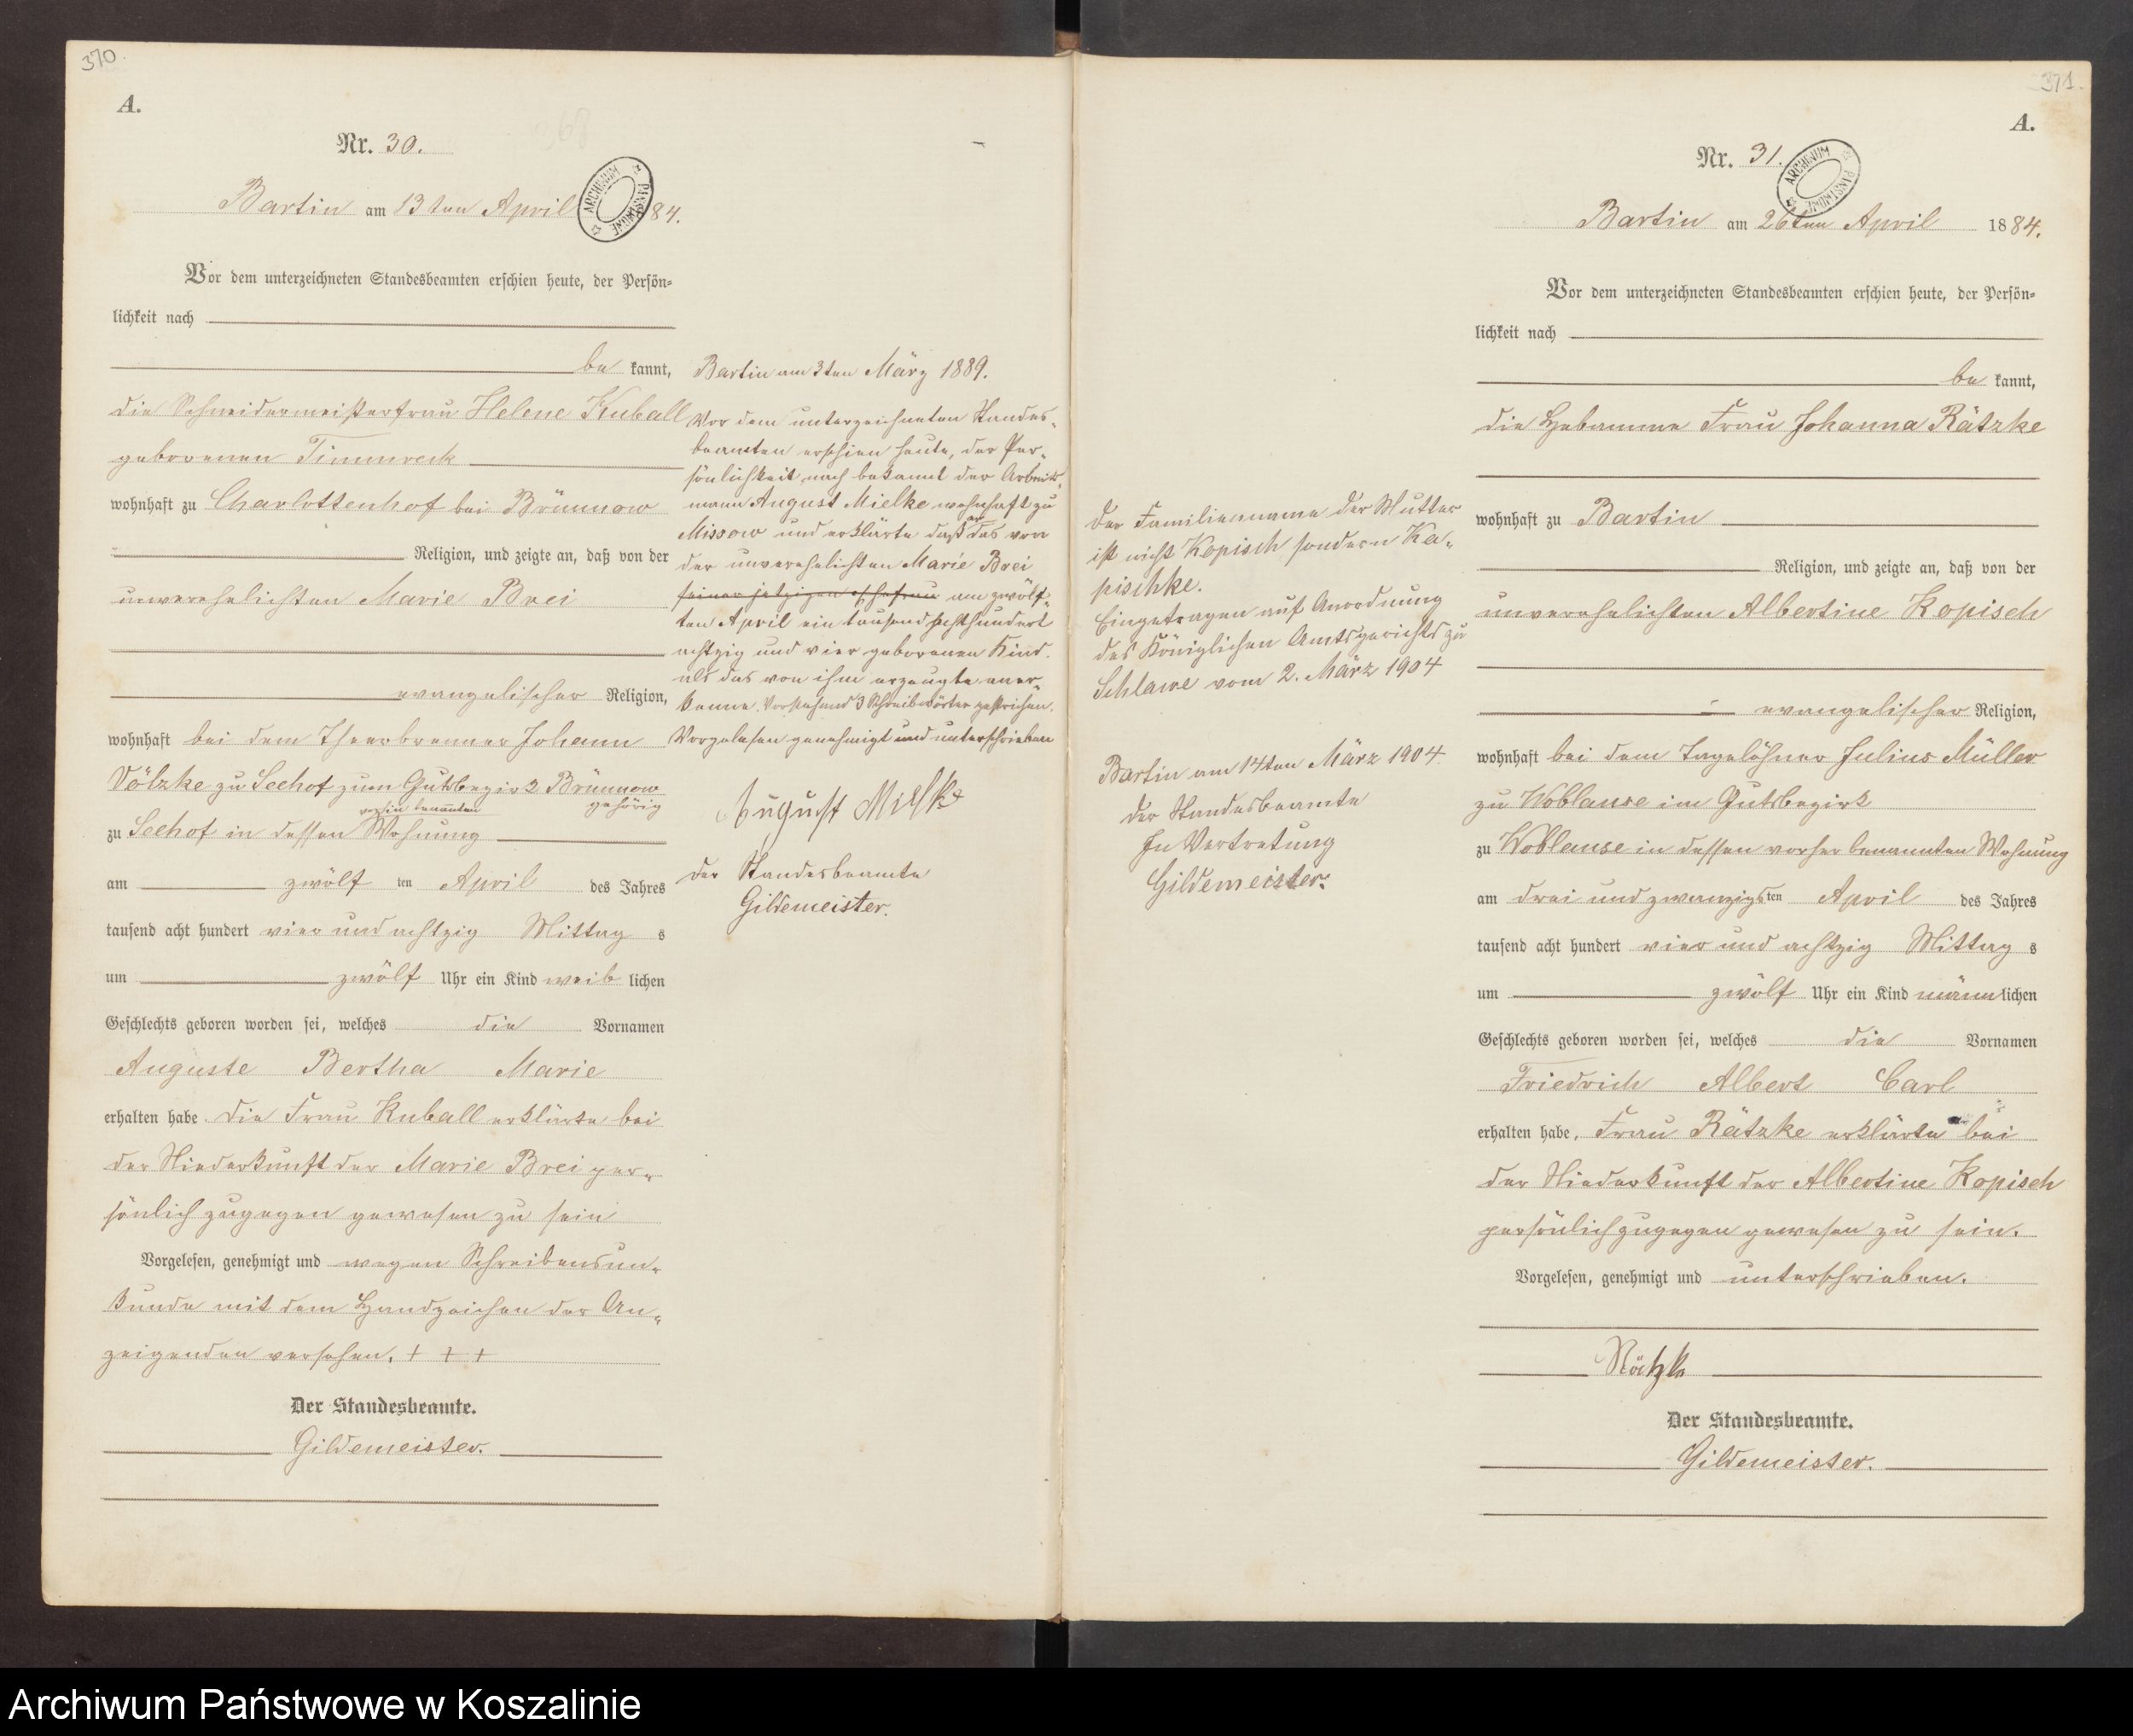 370.
A.
368
Nr. 30.
ARCHIWUM PAŃSTWOWE
Bartin am 13ten April 84.
Vor dem unterzeichneten Standesbeamten erschien heute, der Persön=
lichkeit nach
be kannt,
die Schneidermeisterfrau Helene Kuball
geborenen Timmreck
wohnhaft zu Charlottenhof bei Brünnow
Religion, und zeigte an, daß von der
unverehelichten Marie Brei
evangelischer Religion,
wohnhaft bei dem Theerbrenner Johann
Völzke zu Seehof zum Gutsbezirk Brünnow
gehörig
vorhin benannten
zu Seehof in dessen Wohnung
am zwölf ten April des Jahres
tausend acht hundert vier und achtzig Mittag s
um zwölf Uhr ein Kind weib lichen
Geschlechts geboren worden sei, welches die Vornamen
Auguste Bertha Marie
erhalten habe. Die Frau Kuball erklärte bei
der Niederkunft der Marie Brei per=
sönlich zugegen gewesen zu sein
Vorgelesen, genehmigt und wegen Schreibensun=
kunde mit dem Handzeichen der An=
zeigenden versehen. + + +
Der Standesbeamte.
Gildemeister.
Bartin am 3ten März 1889.
Vor dem unterzeichneten Standes=
beamten erschien heute, der Per=
sönlichkeit nach bekannt der Arbeits=
mann August Mielke wohnhaft zu
Missow und erklärte daß er das von
der unverehelichten Marie Brei
seiner jetzigen Ehefrau am zwölf=
ten April ein tausend achthundert
achtzig und vier geborenen Kind
als das von ihm erzeugte aner=
kenne. Vorstehend 3 Schreibwörter gestrichen.
Vorgelesen genehmigt und unterschrieben
August Mielke
Der Standesbeamte
Gildemeister.
371.
A.
Nr. 31.
ARCHIWUM PAŃSTWOWE
Bartin am 26ten April 1884.
Vor dem unterzeichneten Standesbeamten erschien heute, der Persön=
lichkeit nach
be kannt,
die Hebamme Frau Johanna Rätzke
wohnhaft zu Bartin
Religion, und zeigte an, daß von der
unverehelichten Albertine Kopisch
evangelischer Religion,
wohnhaft bei dem Tagelöhner Julius Müller
zu Woblanse im Gutsbezirk
zu Woblanse in dessen vorher benannten Wohnung
am drei und zwanzigsten April des Jahres
tausend acht hundert vier und achtzig Mittag s
um zwölf Uhr ein Kind männlichen
Geschlechts geboren worden sei, welches die Vornamen
Friedrich Albert Carl
erhalten habe. Frau Rätzke erklärte bei
der Niederkunft der Albertine Kopisch
persönlich zugegen gewesen zu sein.
Vorgelesen, genehmigt und unterschrieben.
Rätzke
Der Standesbeamte.
Gildemeister.
Der Familienname der Mutter
ist nicht Kopisch sondern Ka=
pischke.
Eingetragen auf Anordnung
des Königlichen Amtsgerichts zu
Schlawe vom 2. März 1904
Bartin am 14ten März 1904
Der Standesbeamte
In Vertretung
Gildemeister.
Archiwum Państwowe w Koszalinie